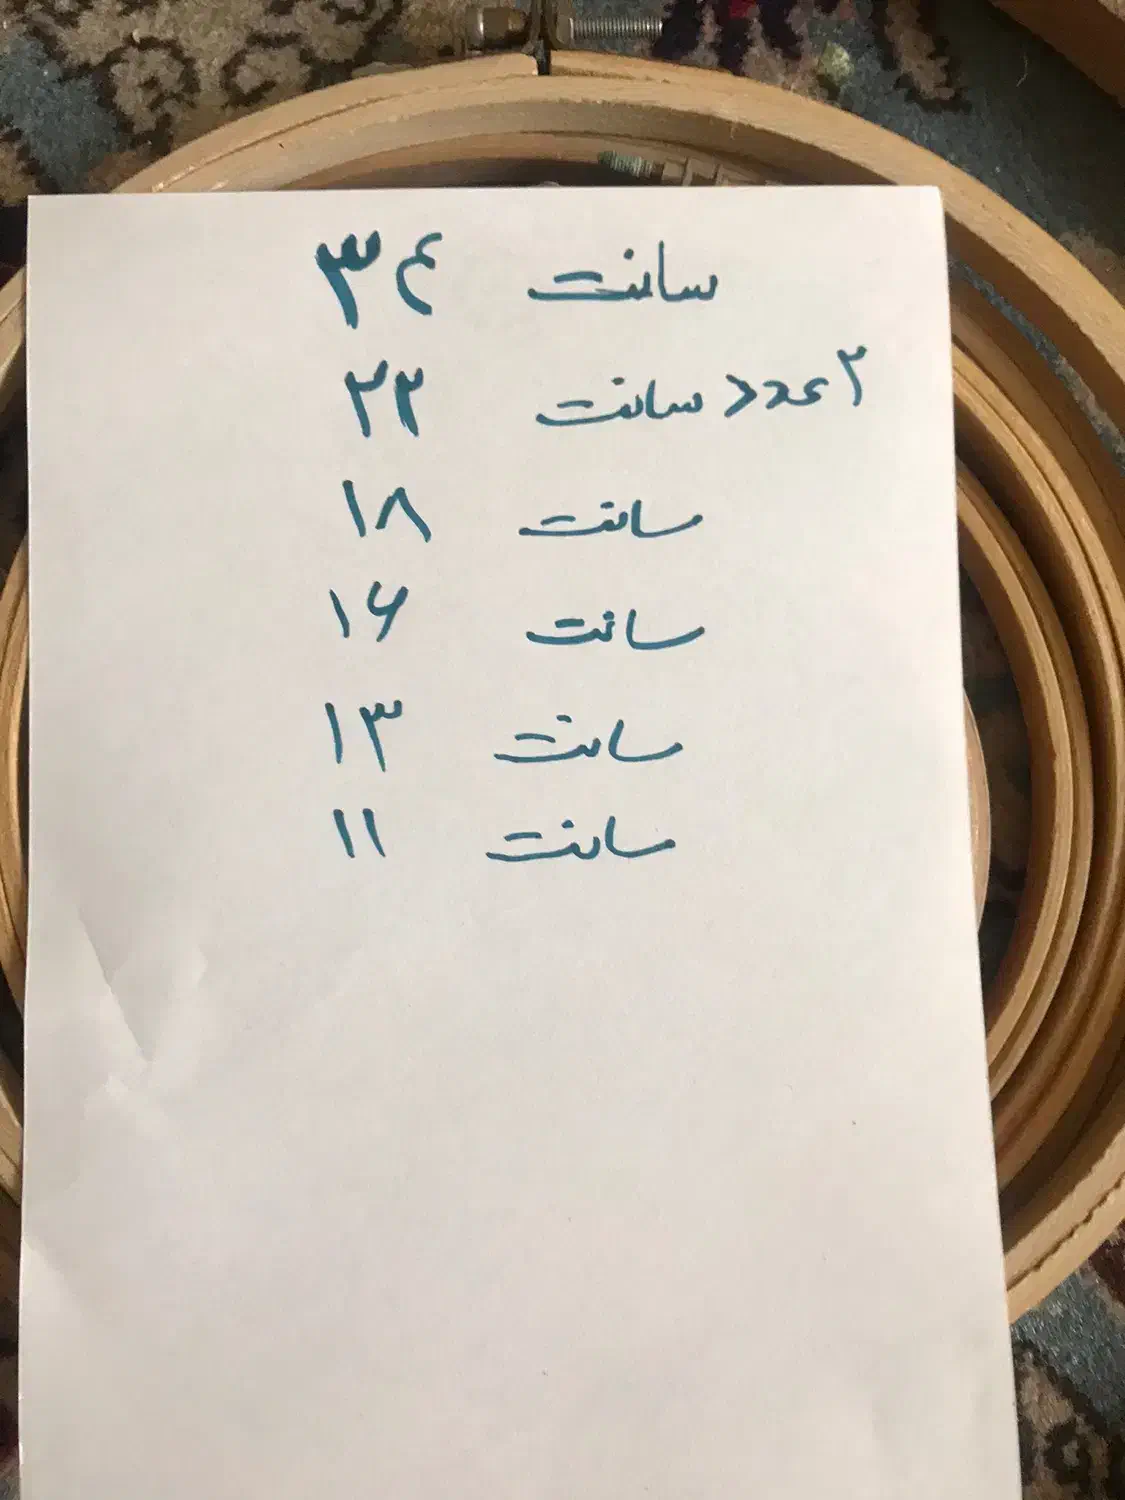 سانت ۳۴
۲ عدد > سانت ۲۲
سانت ۱۸
سانت ۱۶
سانت ۱۳
سانت ۱۱